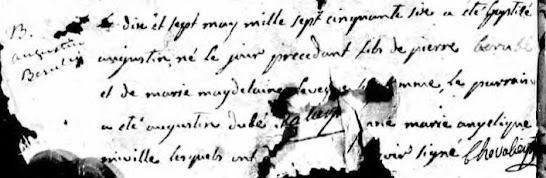 B.
augustin
Berubé
Le dix et sept may mille sept cinquante six a eté baptisé
augustin né le jour precedant fils de pierre berubé
et de marie magdelaine levesque sa femme, le parrain
a eté augustin dubé marie angelique
miville lesquels ont signé Chevalier